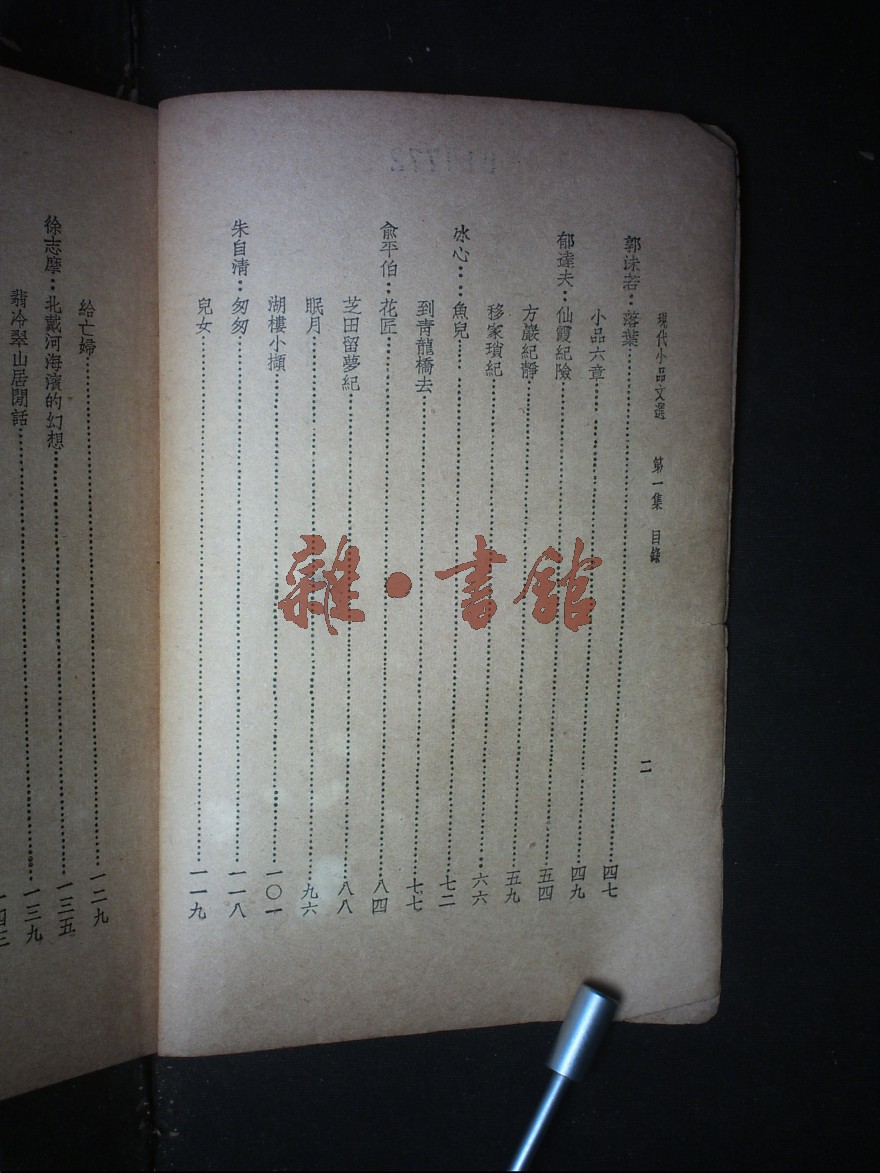 現代小品文選 第一集 目錄 二
郭沫若：落葉……四七
小品六章……四九
郁達夫：仙霞紀險……五四
方巖紀靜……五九
移家瑣紀……六六
冰心：魚兒……七二
到靑龍橋去……七七
兪平伯：花匠……八四
芝田留夢紀……八八
眠月……九六
湖樓小擷……一〇一
朱自清：匆匆……一一八
兒女……一一九
給亡婦……一二九
徐志摩：北戴河海濱的幻想……一三五
翡冷翠山居閒話……一三九
一四三
雜·書館